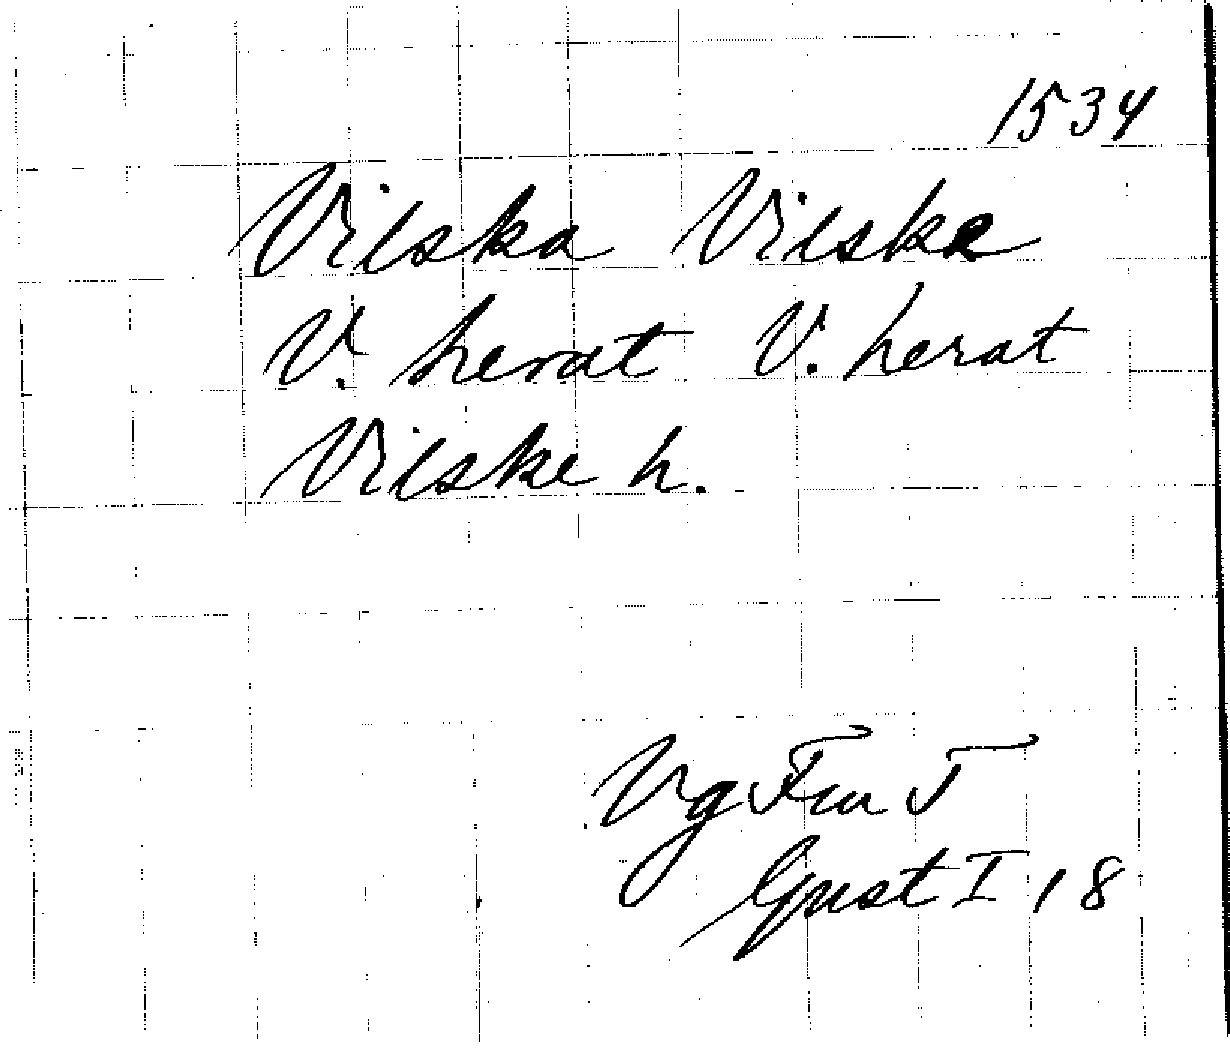 1534
Vilska Vilske
V. herat V. herat
Vilske h.
Vg Fm T
Gust I 18